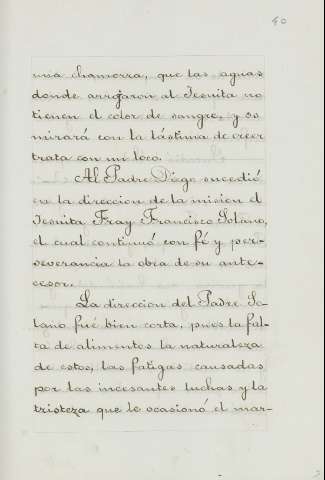 40
una chamorra, que las aguas
donde arrojaron al Jesuita no
tienen el color de sangre, y os
mirará con la lástima de creer
trata con un loco.
Al Padre Diego sucedió
en la direccion de la mision el
Jesuita Fray Francisco Solano,
el cual continuó con fé y per-
severancia la obra de su ante-
cesor.
La direccion del Padre So-
lano fué bien corta, pues la fal-
ta de alimentos la naturaleza
de estos, las fatigas causadas
por las incesantes luchas y la
tristeza que le ocasionó el mar-